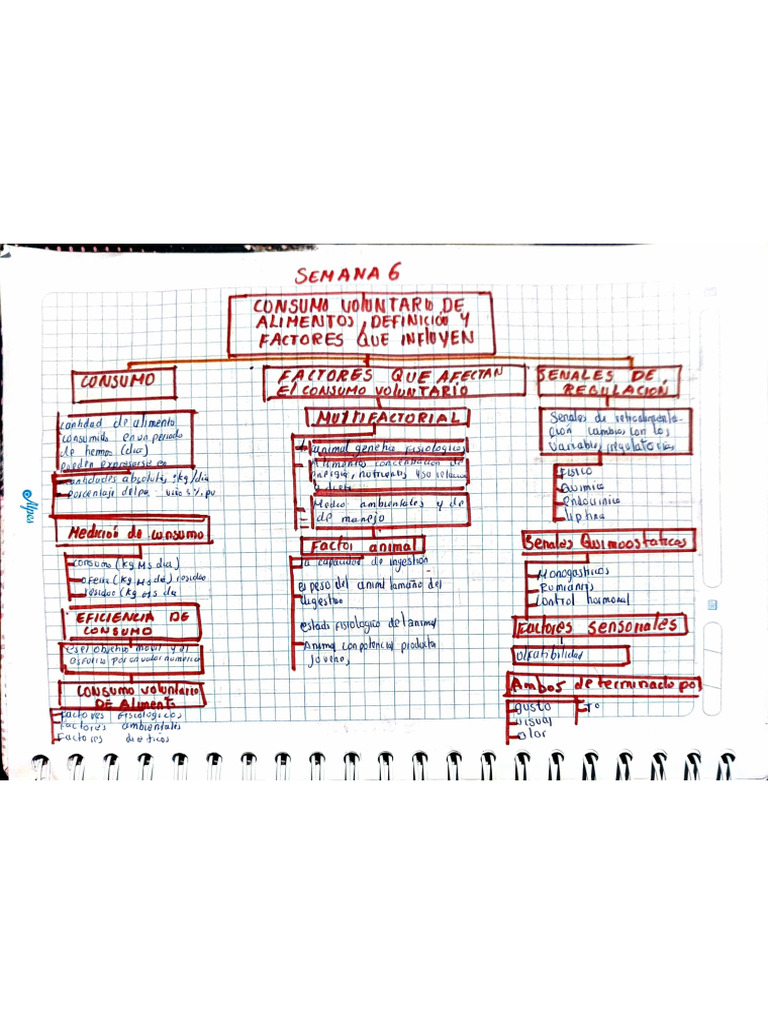 SEMANA 6
CONSUMO VOLUNTARIO DE
ALIMENTOS, DEFINICIÓN Y
FACTORES QUE INFLUYEN
CONSUMO
cantidad de alimento
consumida en un periodo
de tiempo (dia)
pueden expresarse en
cantidades absolutas: kg/dia
porcentaje del peso vivo % pv
Medición de consumo
consumo (kg Ms dia)
oferta (kg Ms dia) residuo
residuo (kg Ms dia
EFICIENCIA DE
CONSUMO
es el objetivo movil y el
esfuerzo por
valor numerico
CONSUMO voluntario
DE Aliment
Factores fisiologicos
Factores ambientales
Factores dieticos
FACTORES QUE AFECTAN
El CONSUMO VOLUNTARIO
MULTIFACTORIAL
animal genetica fisiologicos
Alimentos concentracion de
energia, nutrientes y so relacion
y dieta
Medio ambientales y de
de manejo
Factor animal
la capacidad de ingestión
es peso del animal tamaño del
digestion
estado fisiologico del animal
Animal con potencial producta
jovenes
SENALES DE
REGULACIÓN
Señales de retroalimenta
ción cambios con los
variables regulatorias
FISICO
Quimica
endocrinica
liptina
Senales Quimoostaticas
Monogastricos
Rumiantes
control hormonal
Factores sensoriales
olfatibilidad
Ambos determinado po
gusto
T°
visual
olor
Alpes